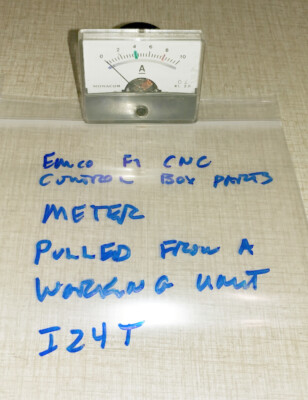 0 2 4 6 8 10
A
EMCO F1 CNC
CONTROL BOX PARTS
METER
PULLED FROM A
WORKING UNIT
I24T